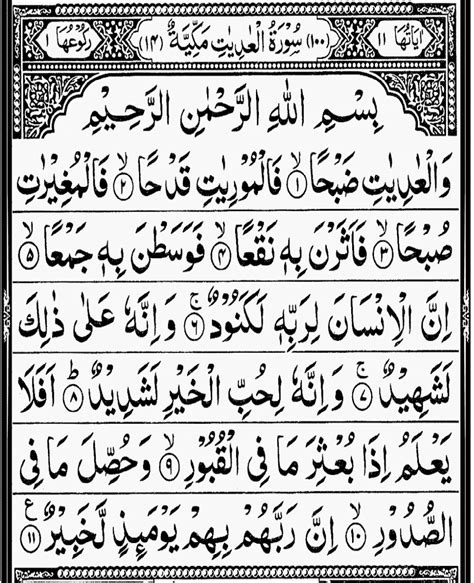 اٰيَاتُهَا ١١ (١٠٠) سُوْرَةُ الْعٰدِيٰتِ مَكِّيَّةٌ (١٤) رُكُوْعُهَا ١
بِسْمِ اللّٰهِ الرَّحْمٰنِ الرَّحِيْمِ
وَالْعٰدِيٰتِ ضَبْحًا ۙ﴿١﴾ فَالْمُوْرِيٰتِ قَدْحًا ۙ﴿٢﴾ فَالْمُغِيْرٰتِ
صُبْحًا ۙ﴿٣﴾ فَاَثَرْنَ بِهٖ نَقْعًا ۙ﴿٤﴾ فَوَسَطْنَ بِهٖ جَمْعًا ۙ﴿٥﴾
اِنَّ الْاِنْسَانَ لِرَبِّهٖ لَكَنُوْدٌ ۚ﴿٦﴾ وَ اِنَّهٗ عَلٰى ذٰلِكَ
لَشَهِيْدٌ ۚ﴿٧﴾ وَ اِنَّهٗ لِحُبِّ الْخَيْرِ لَشَدِيْدٌ ؕ﴿٨﴾ اَفَلَا
يَعْلَمُ اِذَا بُعْثِرَ مَا فِى الْقُبُوْرِ ۙ﴿٩﴾ وَ حُصِّلَ مَا فِى
الصُّدُوْرِ ۙ﴿١٠﴾ اِنَّ رَبَّهُمْ بِهِمْ يَوْمَئِذٍ لَّخَبِيْرٌ ﴿١١﴾ ع